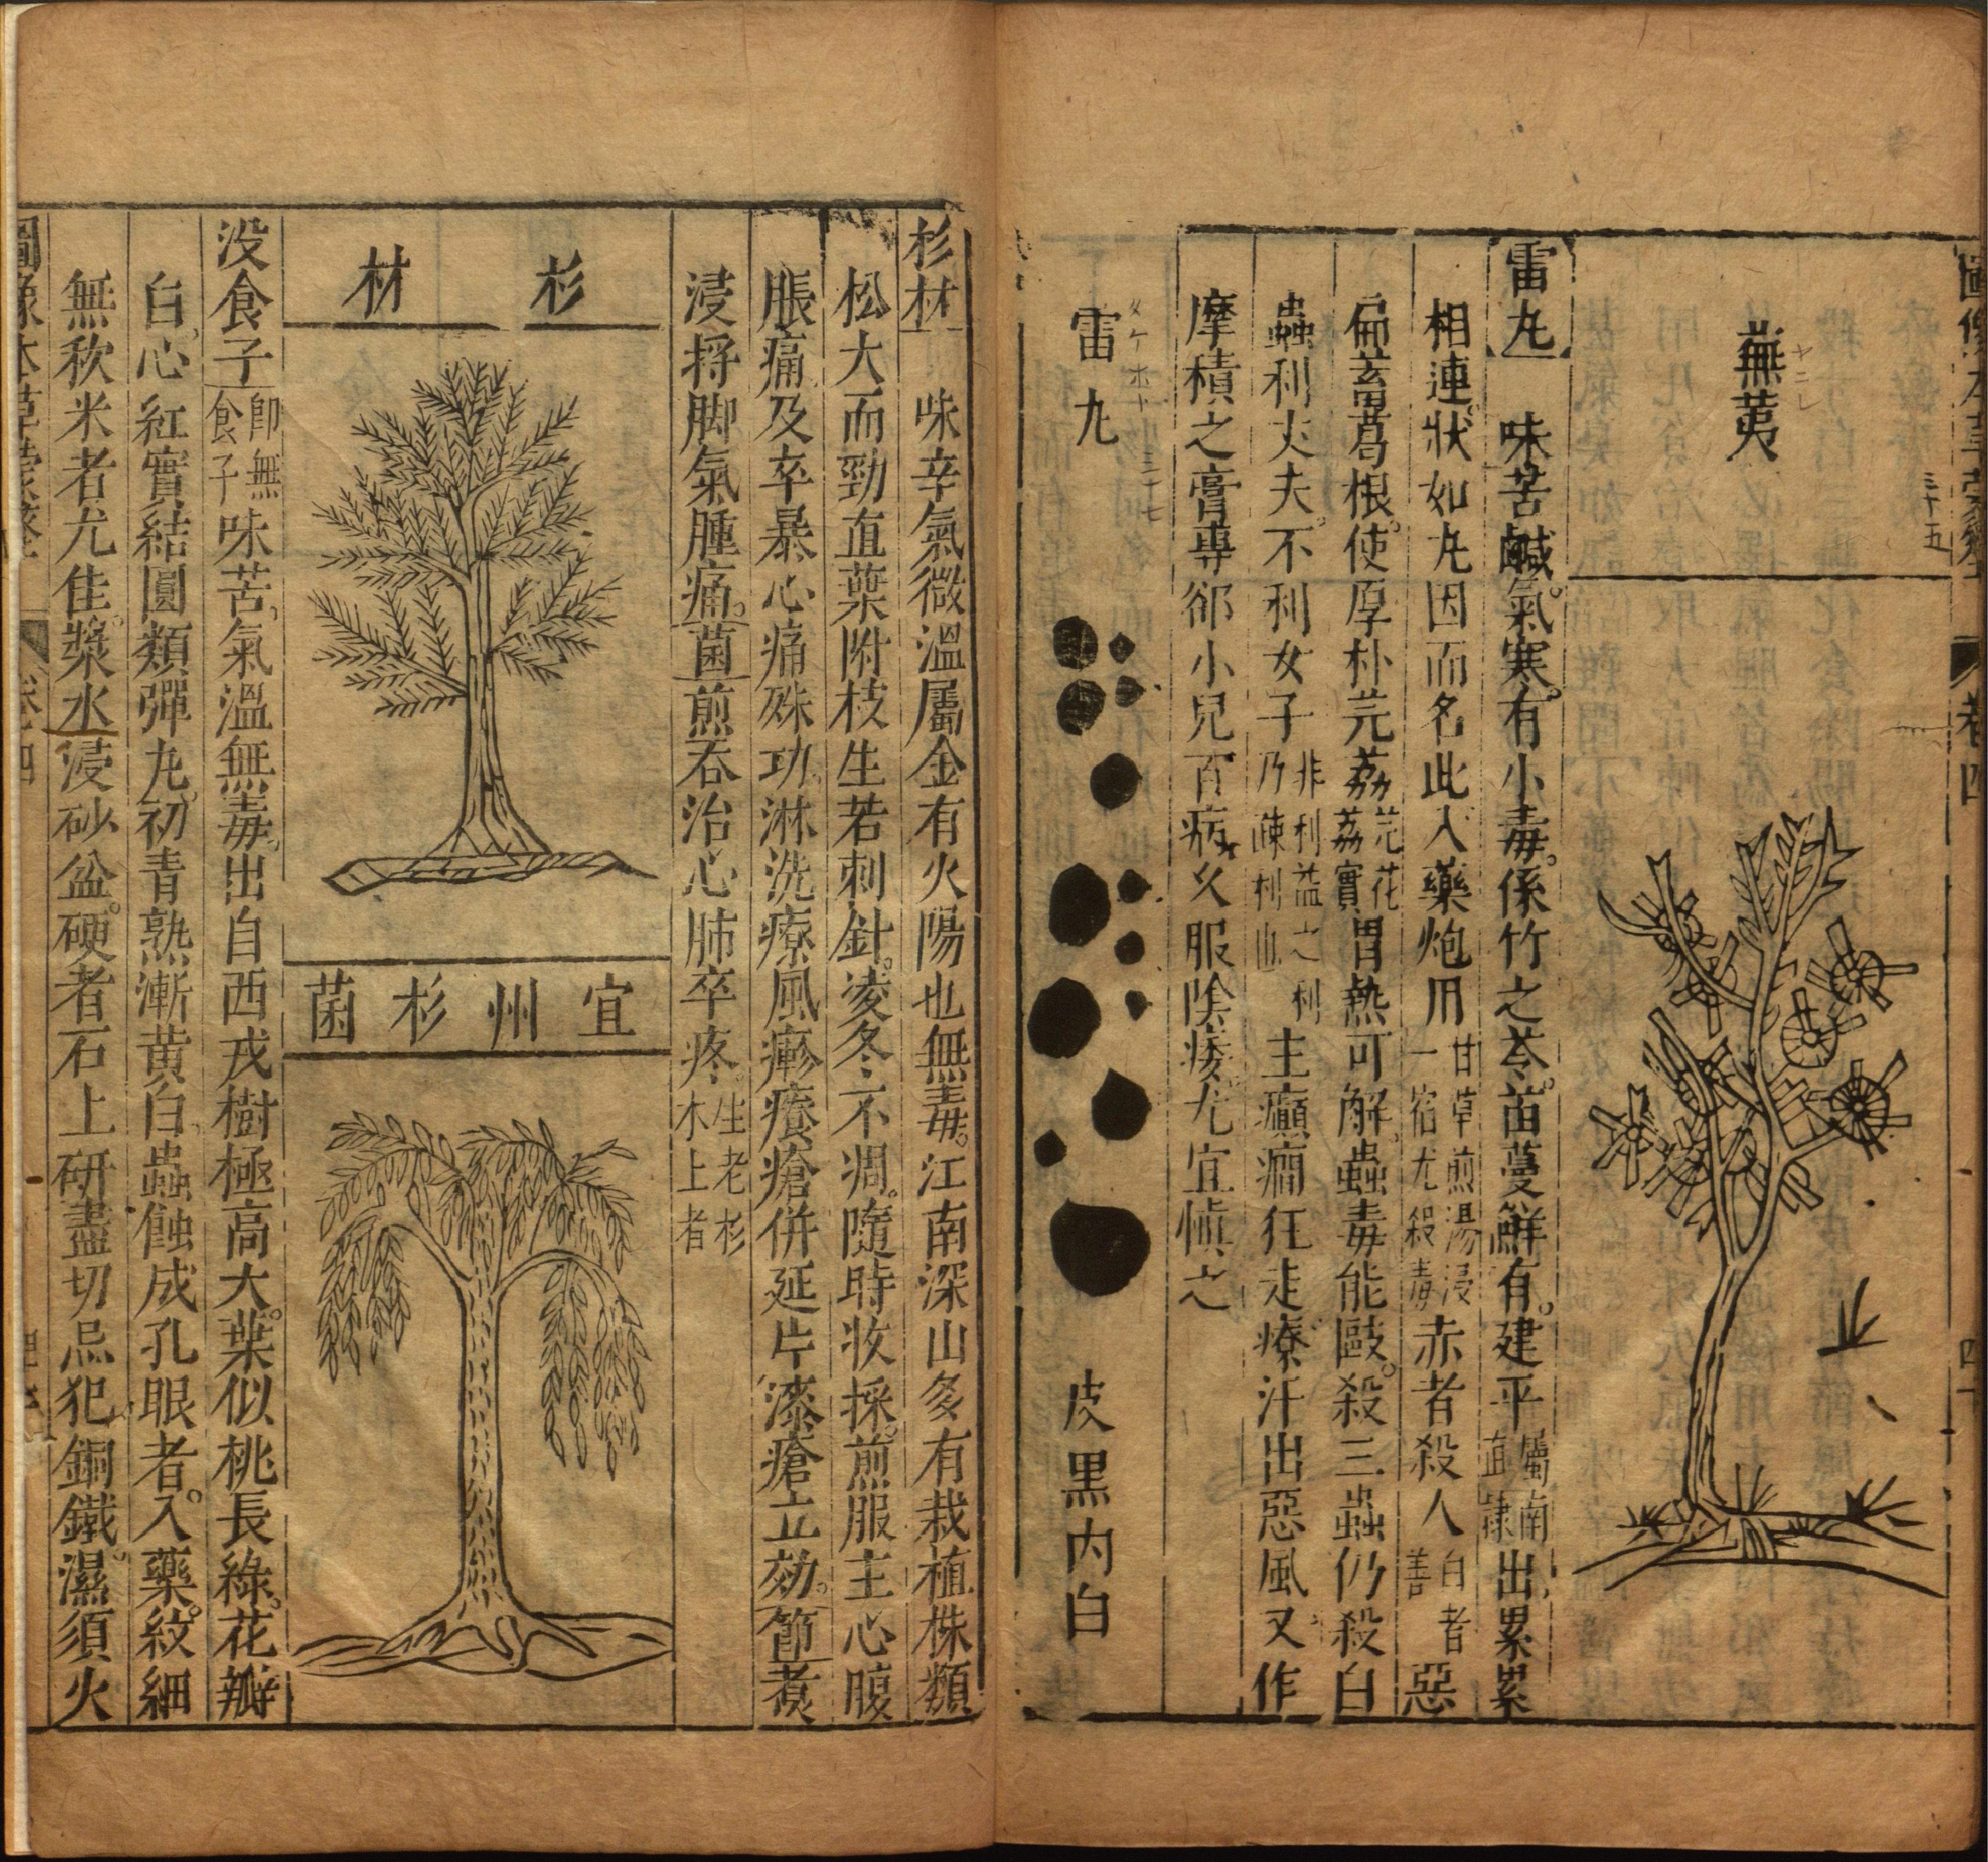 蕪荑
雷丸 味苦鹹氣寒有小毒係竹之苓苗蔓鮮有建平屬南直隸出累累
相連狀如丸因而名此入藥炮用甘草煎湯浸一宿尤殺毒赤者殺人白者善惡
扁蓄葛根使厚朴芫荔芫花荔實胃熱可解蟲毒能敺殺三蟲仍殺白
蟲利丈夫不利女子非利益之利乃疎利也主癲癎狂走療汗出惡風又作
摩積之膏專卻小兒百病久服陰痿尤宜愼之
雷丸
皮黑内白
杉材 味辛氣微溫屬金有火陽也無毒江南深山多有栽植株類
松大而勁直葉附枝生若刺針凌冬不凋隨時收採煎服主心腹
脹痛及卒暴心痛殊功淋洗療風癬癢瘡併延片漆瘡立効節煑
浸捋脚氣腫痛菌煎吞治心肺卒疼生老杉木上者
杉材
宜州杉菌
没食子卽無食子味苦氣溫無毒出自西戎樹極高大葉似桃長綠花瓣
白心紅實結圓類彈丸初青熟漸黄白蟲蝕成孔眼者入藥紋細
無秋米者尤佳漿水浸砂盆硬者石上研盡切忌犯銅鐵濕須火